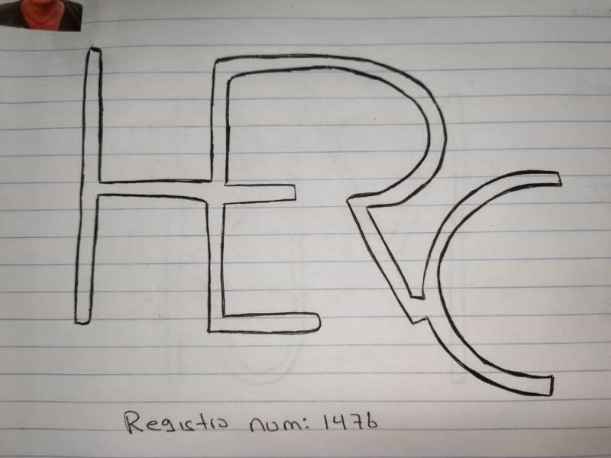 HERC
Registro num: 1476